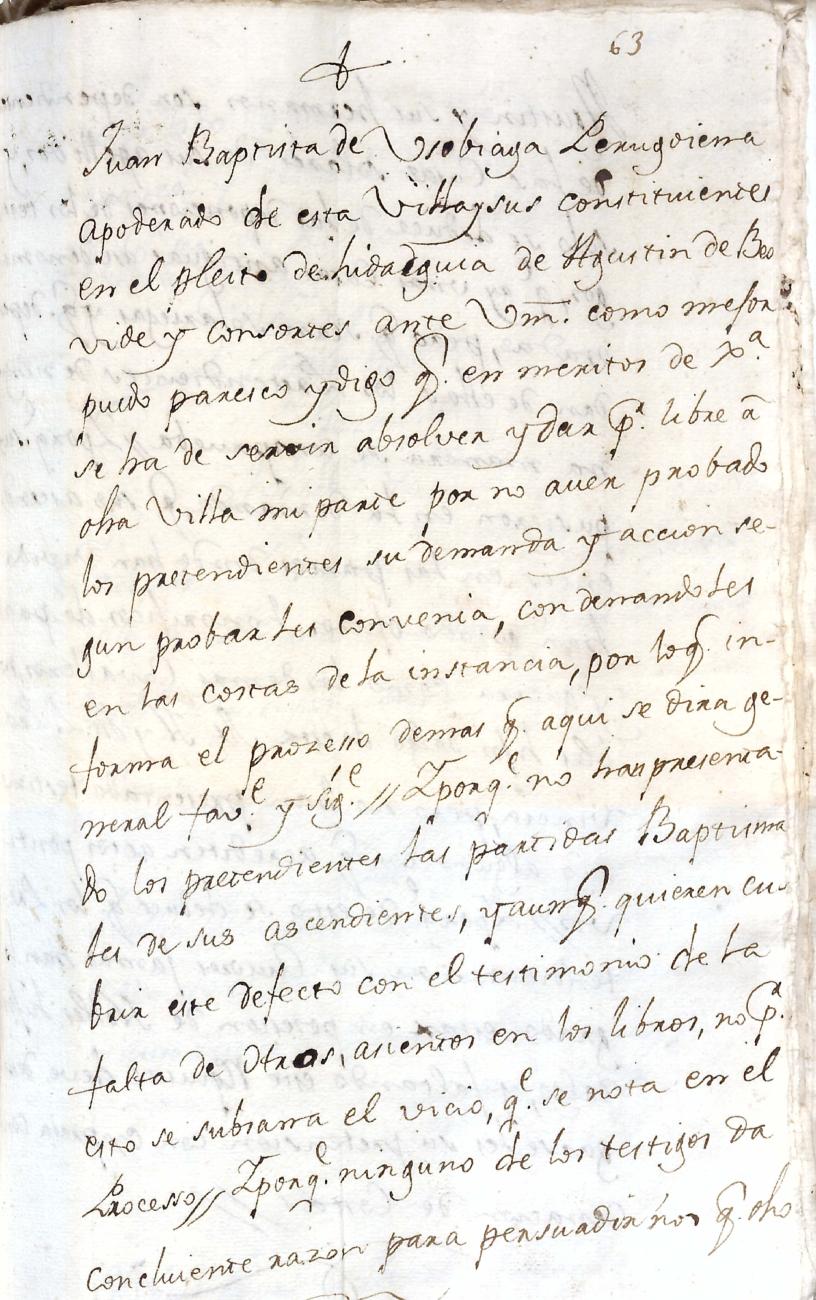 63
Juan Baptista de Usobiaga Lerugoierra
apoderado de esta Villa y sus constituientes
en el pleito de hidalguia de Agustin de Beo
vide y Consortes ante Vm. como mejor
puedo paresco y digo q. en meritos de Jxa
se ha de servir absolver y dar p.r libre à
dha Villa mi parte por no aver probado
los pretendientes su demanda y accion se-
gun probar les convenia, condenandoles
en las costas de la instancia, por lo q. in-
forma el prozesso demas q. aqui se dira ge-
neral fav.e y sig.e // Y porq.e no han presenta-
do los pretendientes las partidas Baptisma
les de sus ascendientes, y aunq. quieren cu-
brir este defecto con el testimonio de la
falta de otros, asientos en los libros, no p.r
esto se subsana el vicio, q.e se nota en el
Processo // Y porq.e ninguno de los testigos da
concluiente razon para persuadirnos q. dho